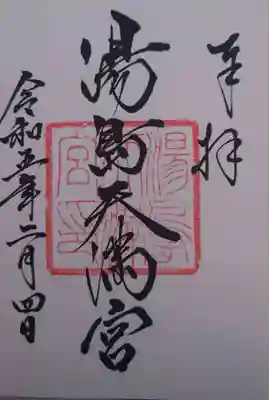 奉拝
湯島天満宮
令和五年二月四日